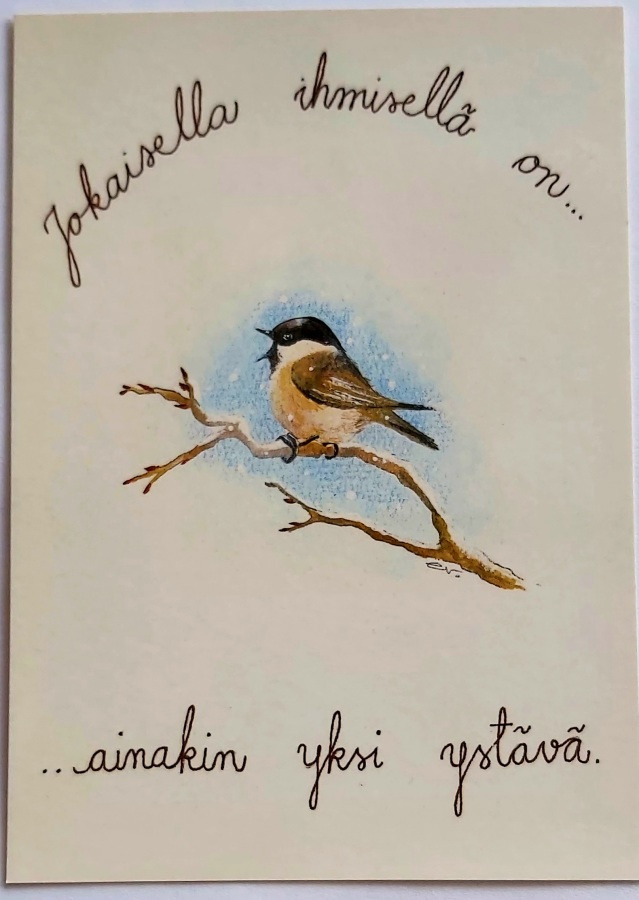 Jokaisella ihmisellä on...
...ainakin yksi ystävä.